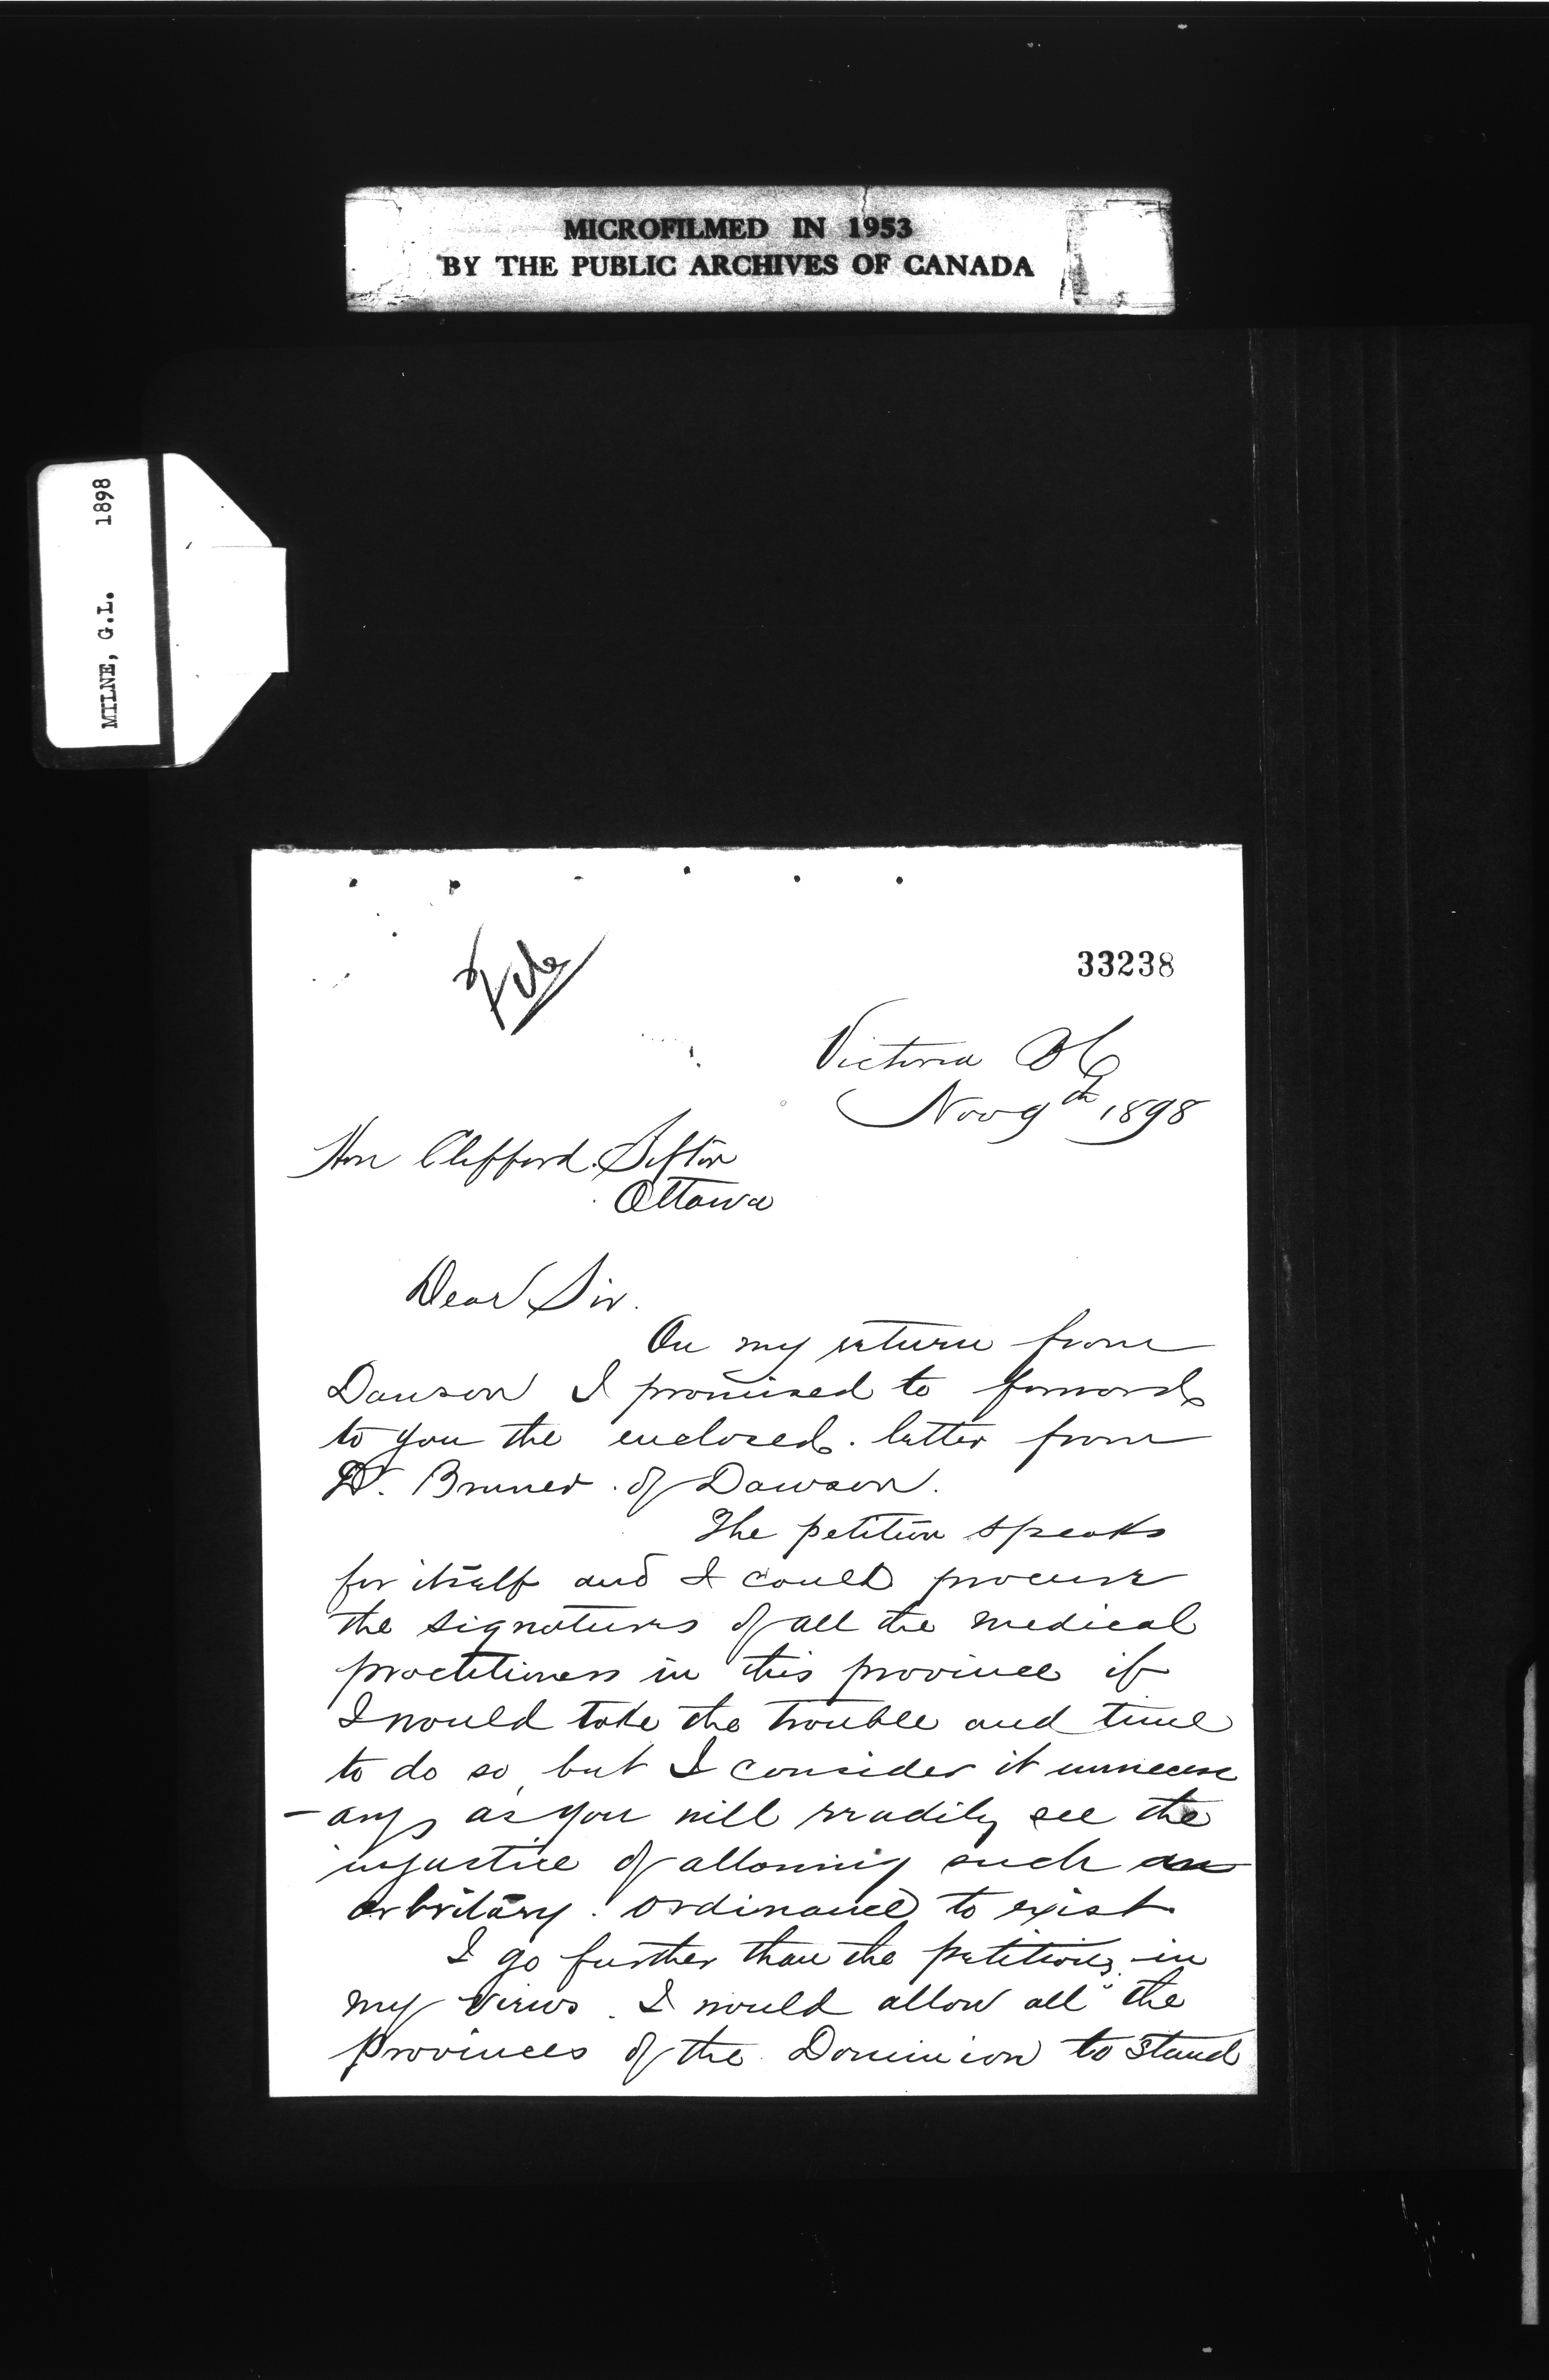 MICROFILMED IN 1953
BY THE PUBLIC ARCHIVES OF CANADA
MILNE, G.L. 1898
File
33238
Victoria BC
Nov 9th 1898
Hon Clifford Sifton
Ottawa
Dear Sir.
On my return from
Dawson I promised to forward
to you the enclosed letter from
Dr. Bruner of Dawson.
The petition speaks
for itself and I could procure
the signatures of all the medical
practitioners in this province if
I would take the trouble and time
to do so, but I consider it unnecess
-ary as you will readily see the
injustice of allowing such an
arbritary ordinance to exist
I go further than the petitions in
my views. I would allow all the
Provinces of the Dominion to stand